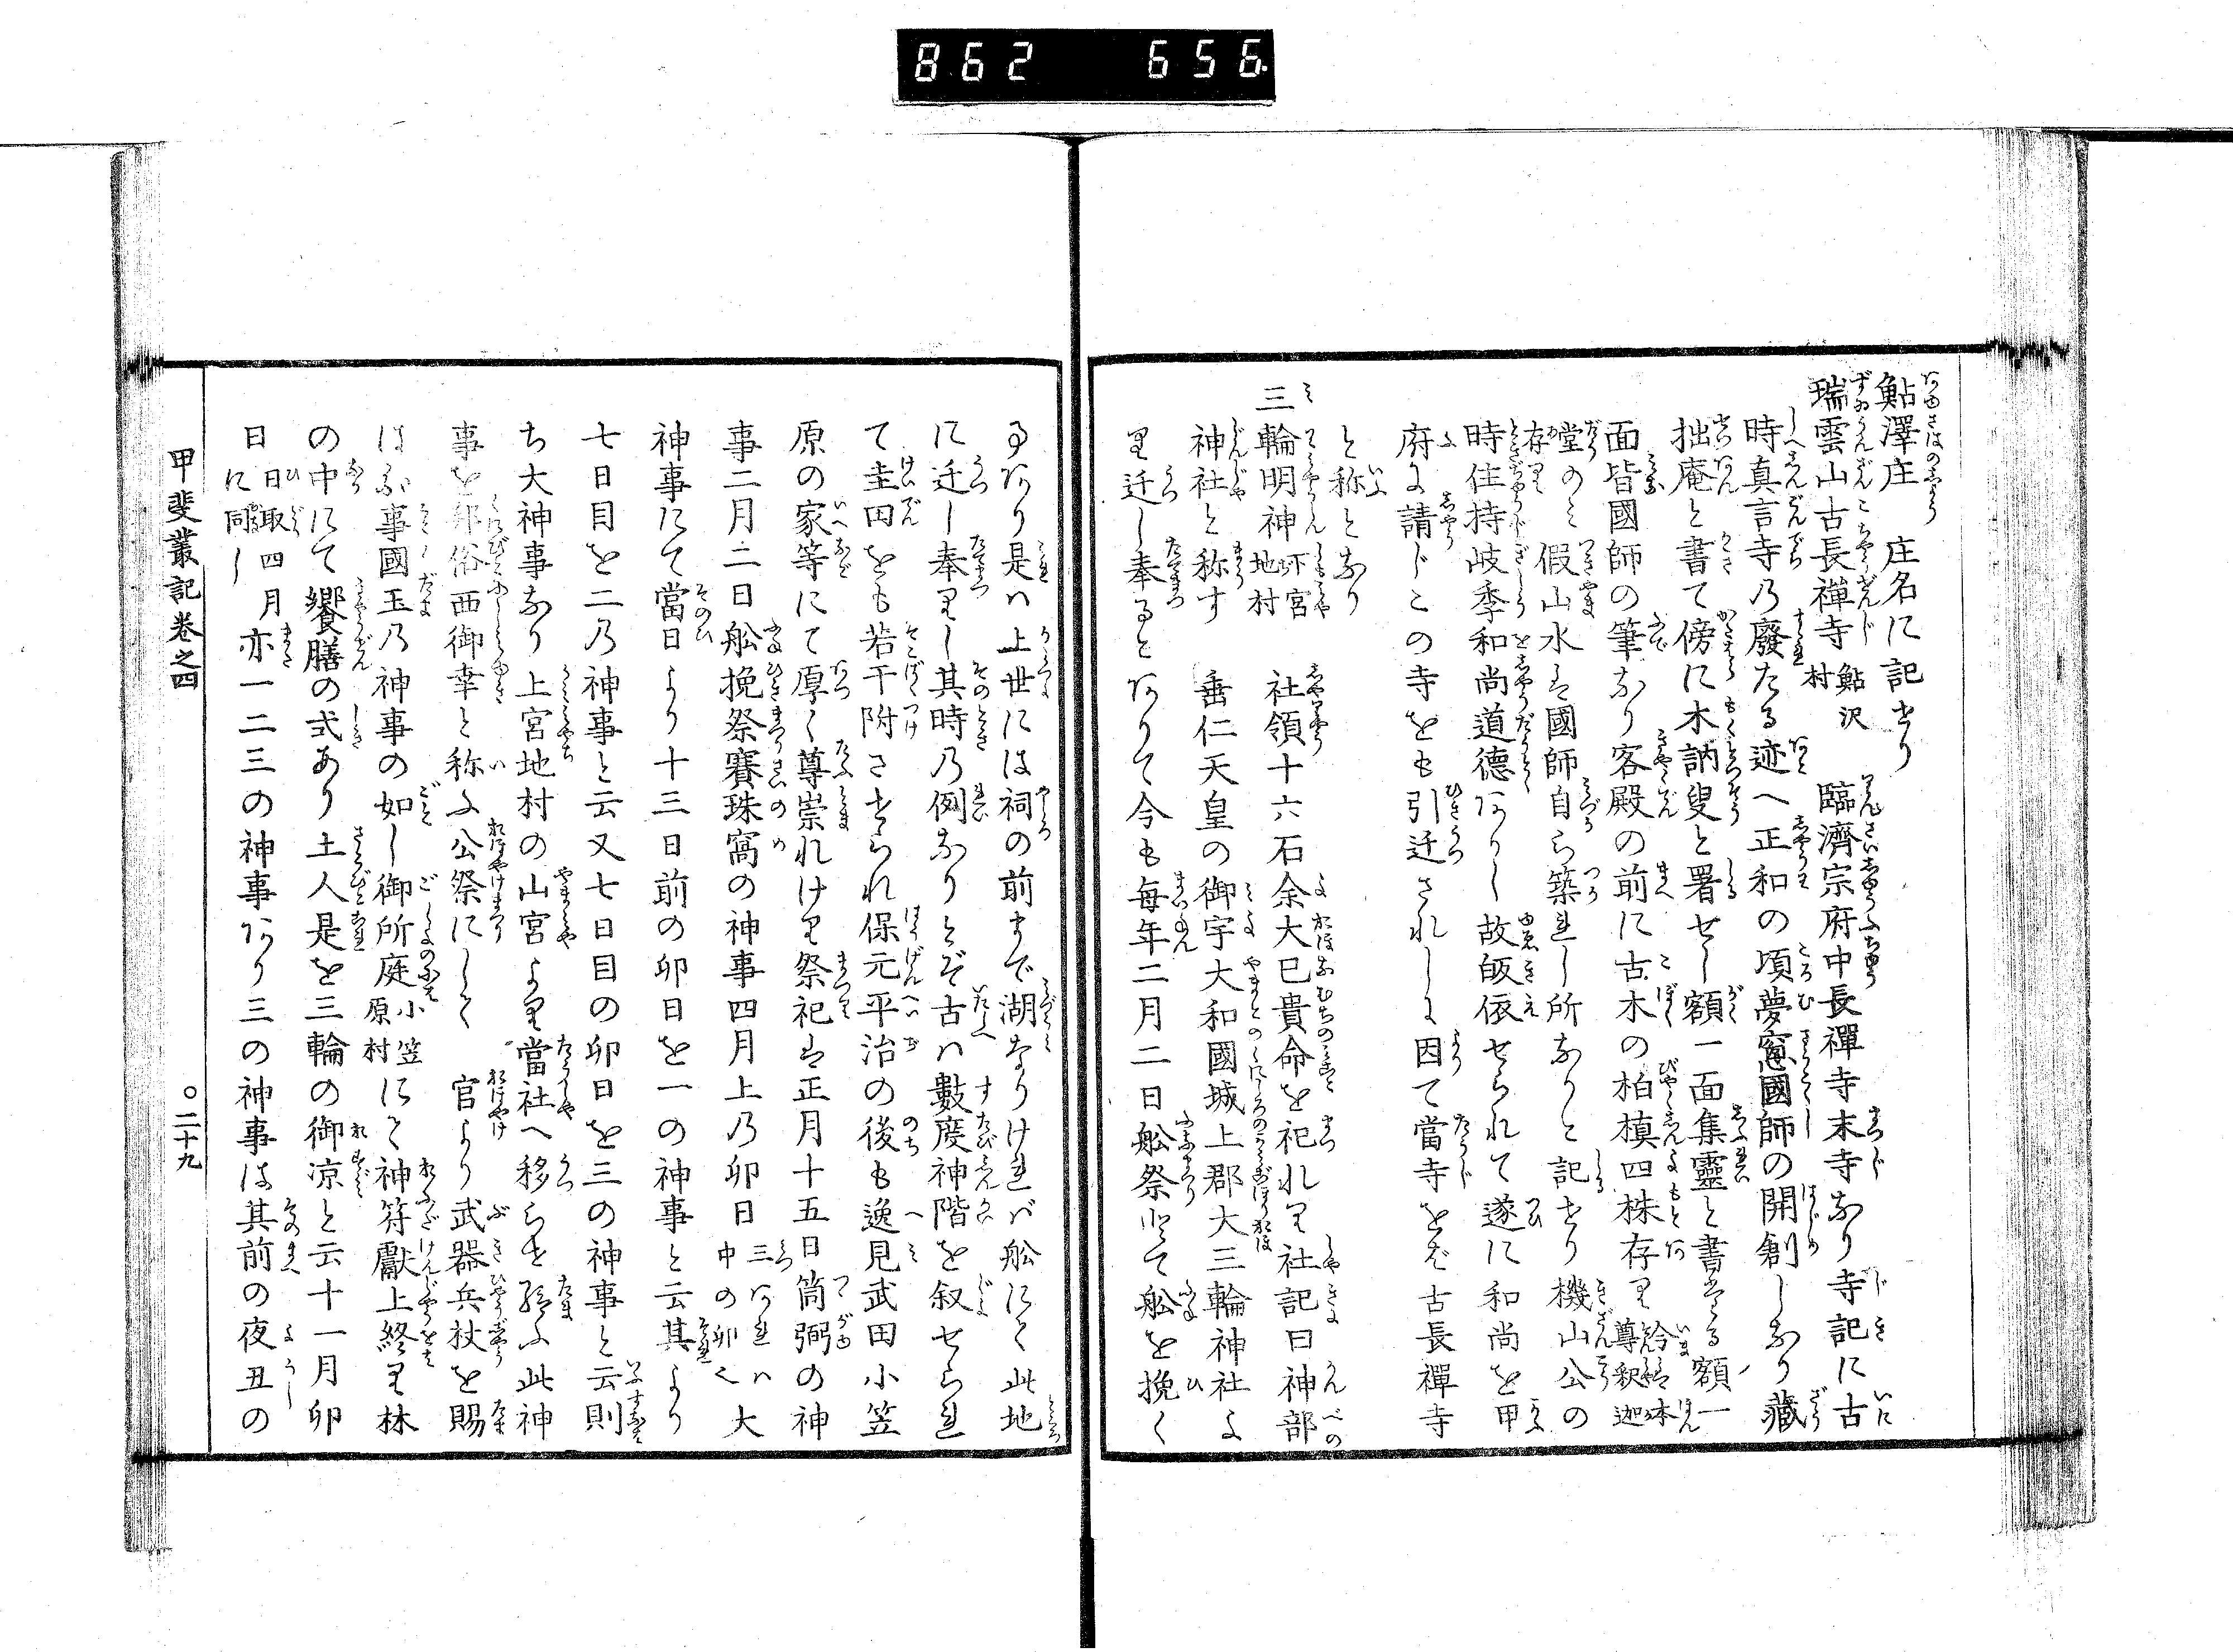 862 656
鮎澤庄 庄名に記せり
瑞雲山古長禪寺 鮎沢村 臨濟宗府中長禪寺末寺なり寺記に古
時真言寺乃廢たる迹へ正和の頃夢窓國師の開創しなり藏
拙庵と書て傍に木訥叟と署せし額一面集靈と書たる額一
面皆國師の筆なり客殿の前に古木の柏槙四株存り
堂のミ存り 假山水ハ國師自ら築れし所なりと記せり機山公の
時住持岐秀和尚道德ありし故皈依せられて遂に和尚を甲
府に請じこの寺をも引迁されしに因て當寺をば古長禪寺
と称となり
三輪明神 下宮地村 社領十六石余大已貴命を祀れり社記曰神部
神社と称す 垂仁天皇の御宇大和國城上郡大三輪神社よ
り迁し奉るとありて今も毎年二月二日舩祭とて舩を挽く
事あり是ハ上世には祠の前まで湖なりけれバ舩にて此地
に迁し奉りし其時乃例なりとぞ古ハ數度神階を叙せられ
て圭田をも若干附させられ保元平治の後も逸見武田小笠
原の家等にて厚く尊崇れけり祭祀ハ正月十五日筒粥の神
事二月二日舩挽祭賽珠窩の神事四月上乃卯日 三あれハ中の卯 大
神事にて當日より十三日前の卯日を一の神事と云其より
七日目を二乃神事と云又七日目の卯日を三の神事と云則
ち大神事なり上宮地村の山宮より當社へ移らせ給ふ此神
事を郷俗西御幸と称ふ公祭にして 官より武器兵杖を賜
はふ事國玉乃神事の如し御所庭 小笠原村 にて神符獻上終り林
の中にて饗膳の式あり土人是を三輪の御凉と云十一月卯
日 日取四月に同し 亦一二三の神事あり三の神事は其前の夜丑の
甲斐叢記巻之四 ○二十九